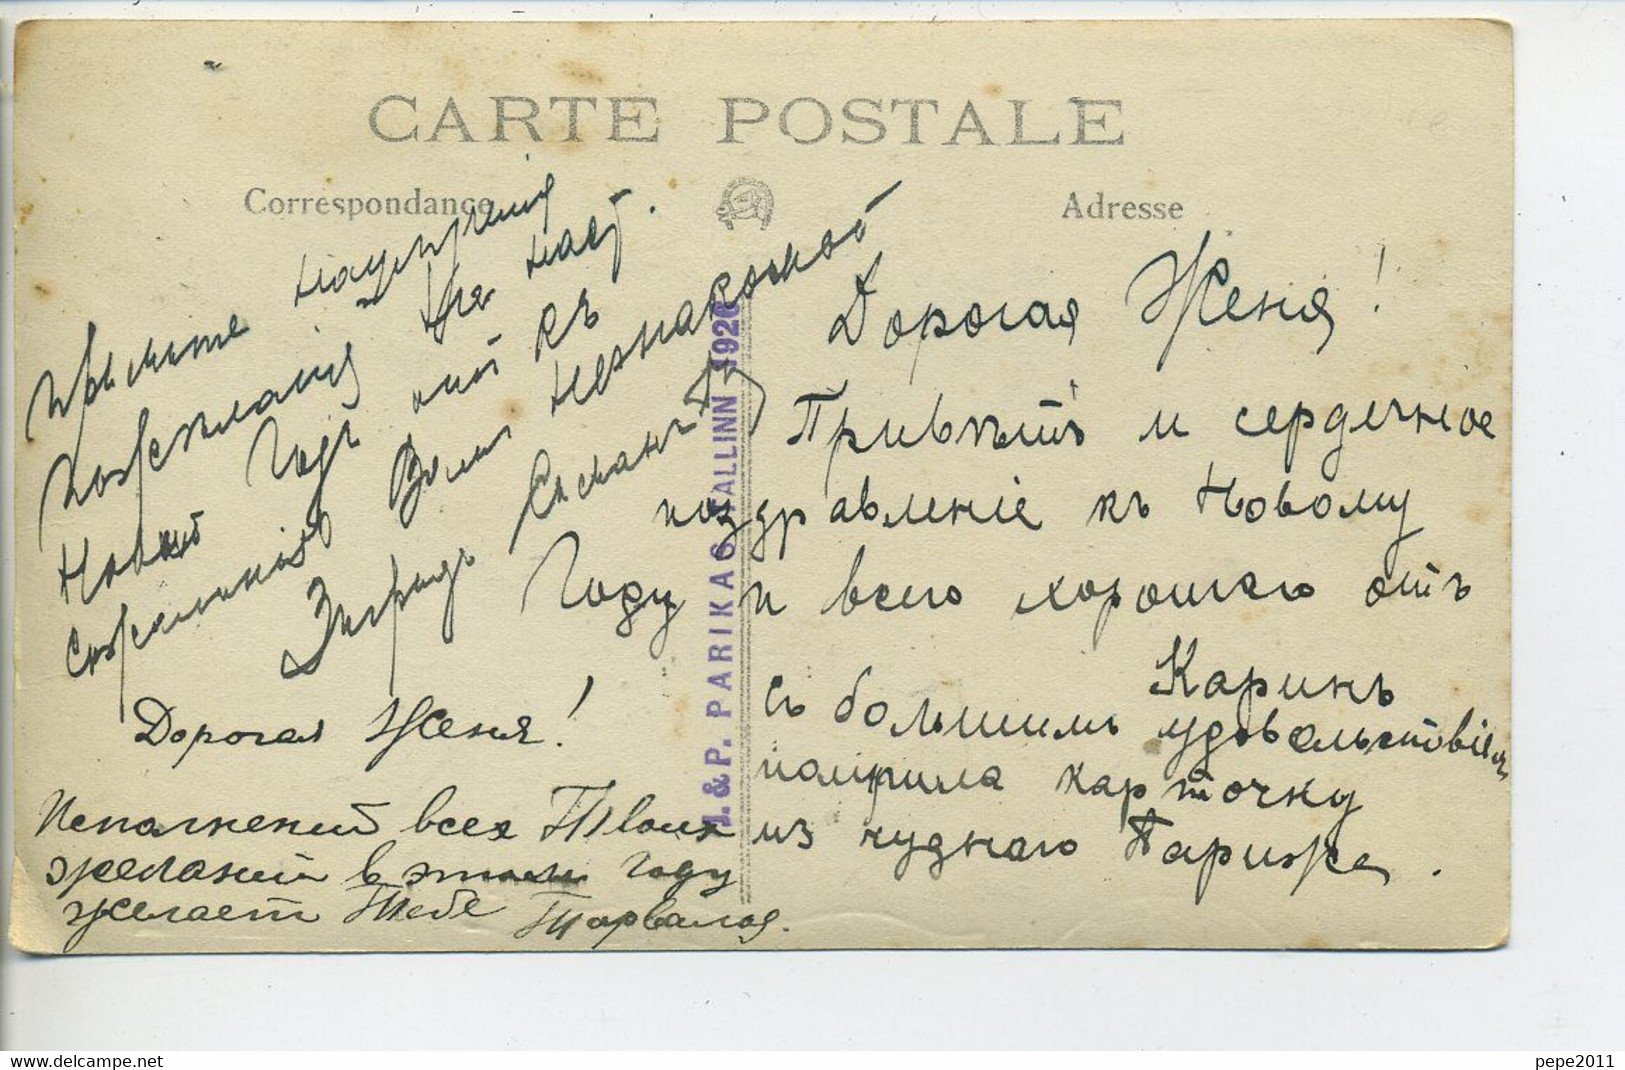 CARTE POSTALE
Correspondance
Adresse
Примите наилучшія
пожеланія на наст.
Новый Годъ отъ
Вамъ незнакомой
Зигридъ
Дорогая Женя!
Исполнений всех Твоих
желаний в этом году
желает Тебе
J. & P. PARIKAS TALLINN 1926
Дорогая Женя!
Привѣтъ и сердечное
поздравленіе къ Новому
Году и всего хорошаго отъ
Каринъ
Съ большимъ удовольствіем
получила карточку
из чуднаго Парижа.
www.delcampe.net
pepe2011